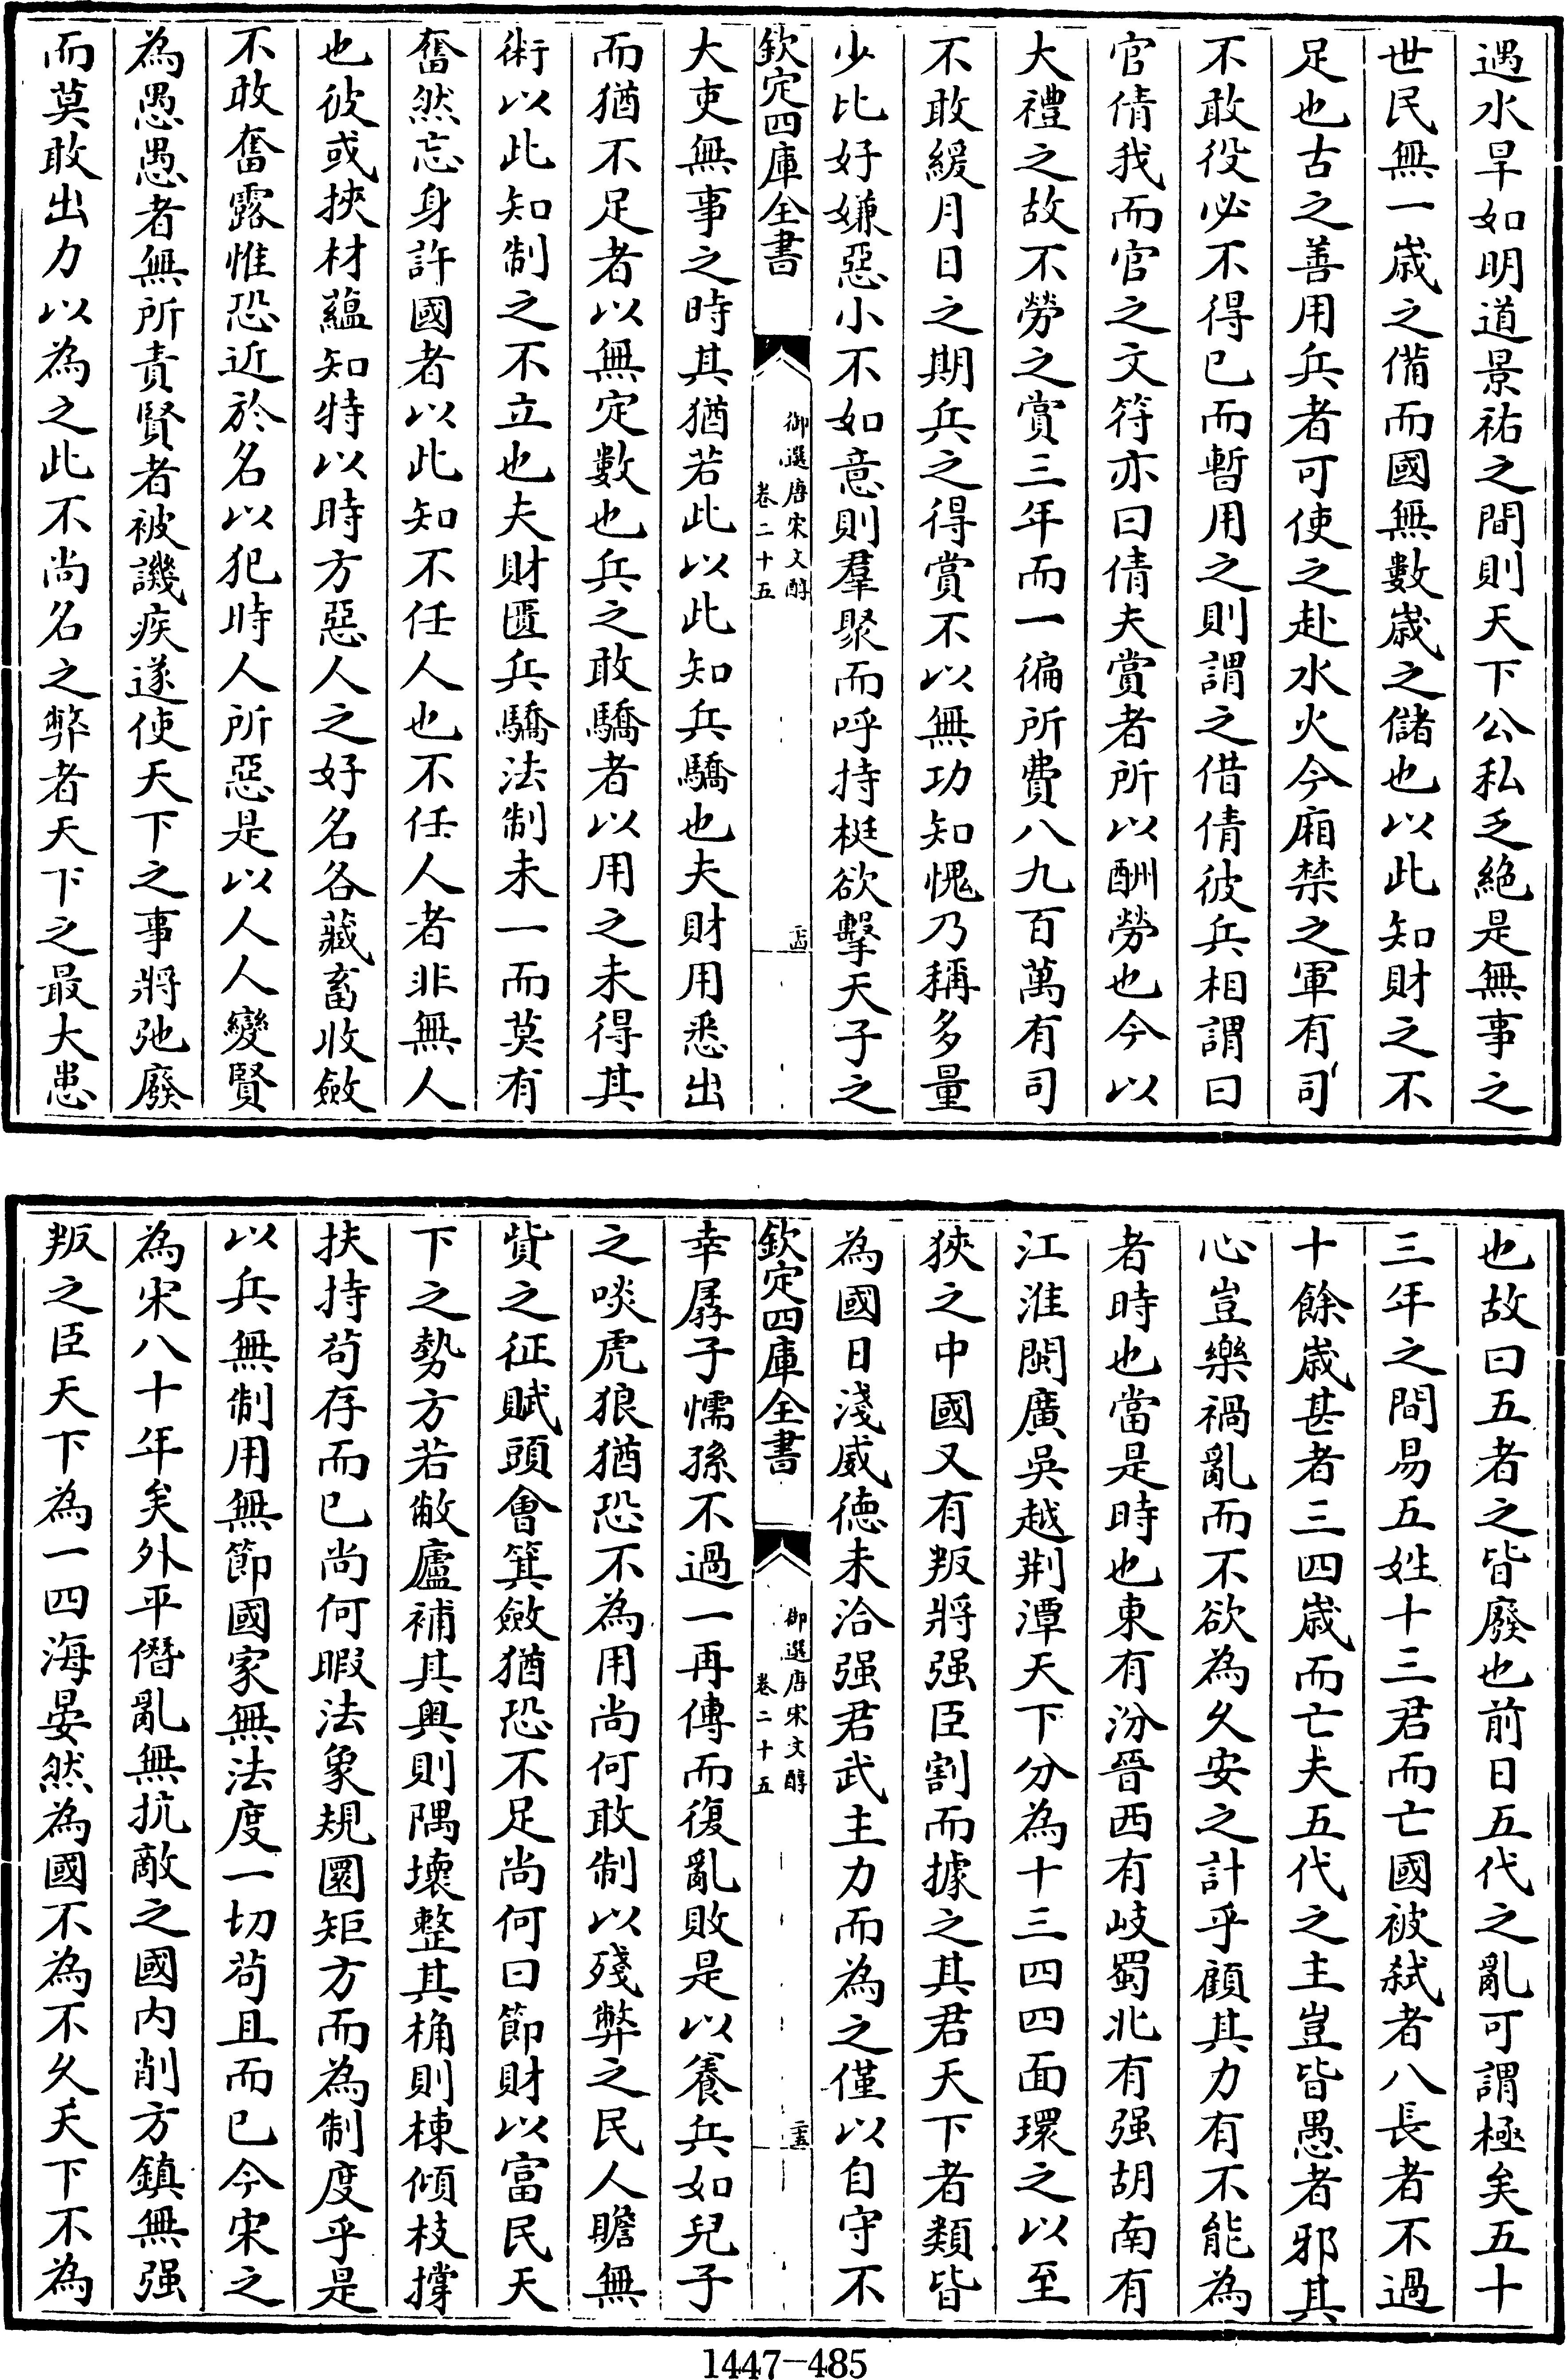 遇水旱如明道景祐之間則天下公私乏絶是無事之
世民無一歳之備而國無數歳之儲也以此知財之不
足也古之善用兵者可使之赴水火今廂禁之軍有司
不敢役必不得已而暫用之則謂之借倩彼兵相謂曰
官倩我而官之文符亦曰倩夫賞者所以酬勞也今以
大禮之故不勞之賞三年而一徧所費八九百萬有司
不敢緩月日之期兵之得賞不以無功知愧乃稱多量
少比好嫌惡小不如意則羣聚而呼持梃欲擊天子之
欽定四庫全書
御選唐宋文醇
卷二十五
二十四
大吏無事之時其猶若此以此知兵驕也夫財用悉出
而猶不足者以無定數也兵之敢驕者以用之未得其
術以此知制之不立也夫財匱兵驕法制未一而莫有
奮然忘身許國者以此知不任人也不任人者非無人
也彼或挾材藴知特以時方惡人之好名各藏畜收斂
不敢奮露惟恐近於名以犯時人所惡是以人人變賢
為愚愚者無所責賢者被譏疾遂使天下之事將弛廢
而莫敢出力以為之此不尚名之弊者天下之最大患
也故曰五者之皆廢也前日五代之亂可謂極矣五十
三年之間易五姓十三君而亡國被弑者八長者不過
十餘歳甚者三四歳而亡夫五代之主豈皆愚者邪其
心豈樂禍亂而不欲為久安之計乎顧其力有不能為
者時也當是時也東有汾晉西有岐蜀北有强胡南有
江淮閩廣吳越荆潭天下分為十三四四面環之以至
狹之中國又有叛將强臣割而據之其君天下者類皆
為國日淺威德未洽强君武主力而為之僅以自守不
欽定四庫全書
御選唐宋文醇
卷二十五
二十五
幸孱子懦孫不過一再傳而復亂敗是以養兵如兒子
之啖虎狼猶恐不為用尚何敢制以殘弊之民人贍無
貲之征賦頭會箕斂猶恐不足尚何曰節財以富民天
下之勢方若敝廬補其奥則隅壞整其桷則棟傾枝撐
扶持苟存而已尚何暇法象規圜矩方而為制度乎是
以兵無制用無節國家無法度一切苟且而已今宋之
為宋八十年矣外平僭亂無抗敵之國内削方鎮無强
叛之臣天下為一四海晏然為國不為不久天下不為
1447-485